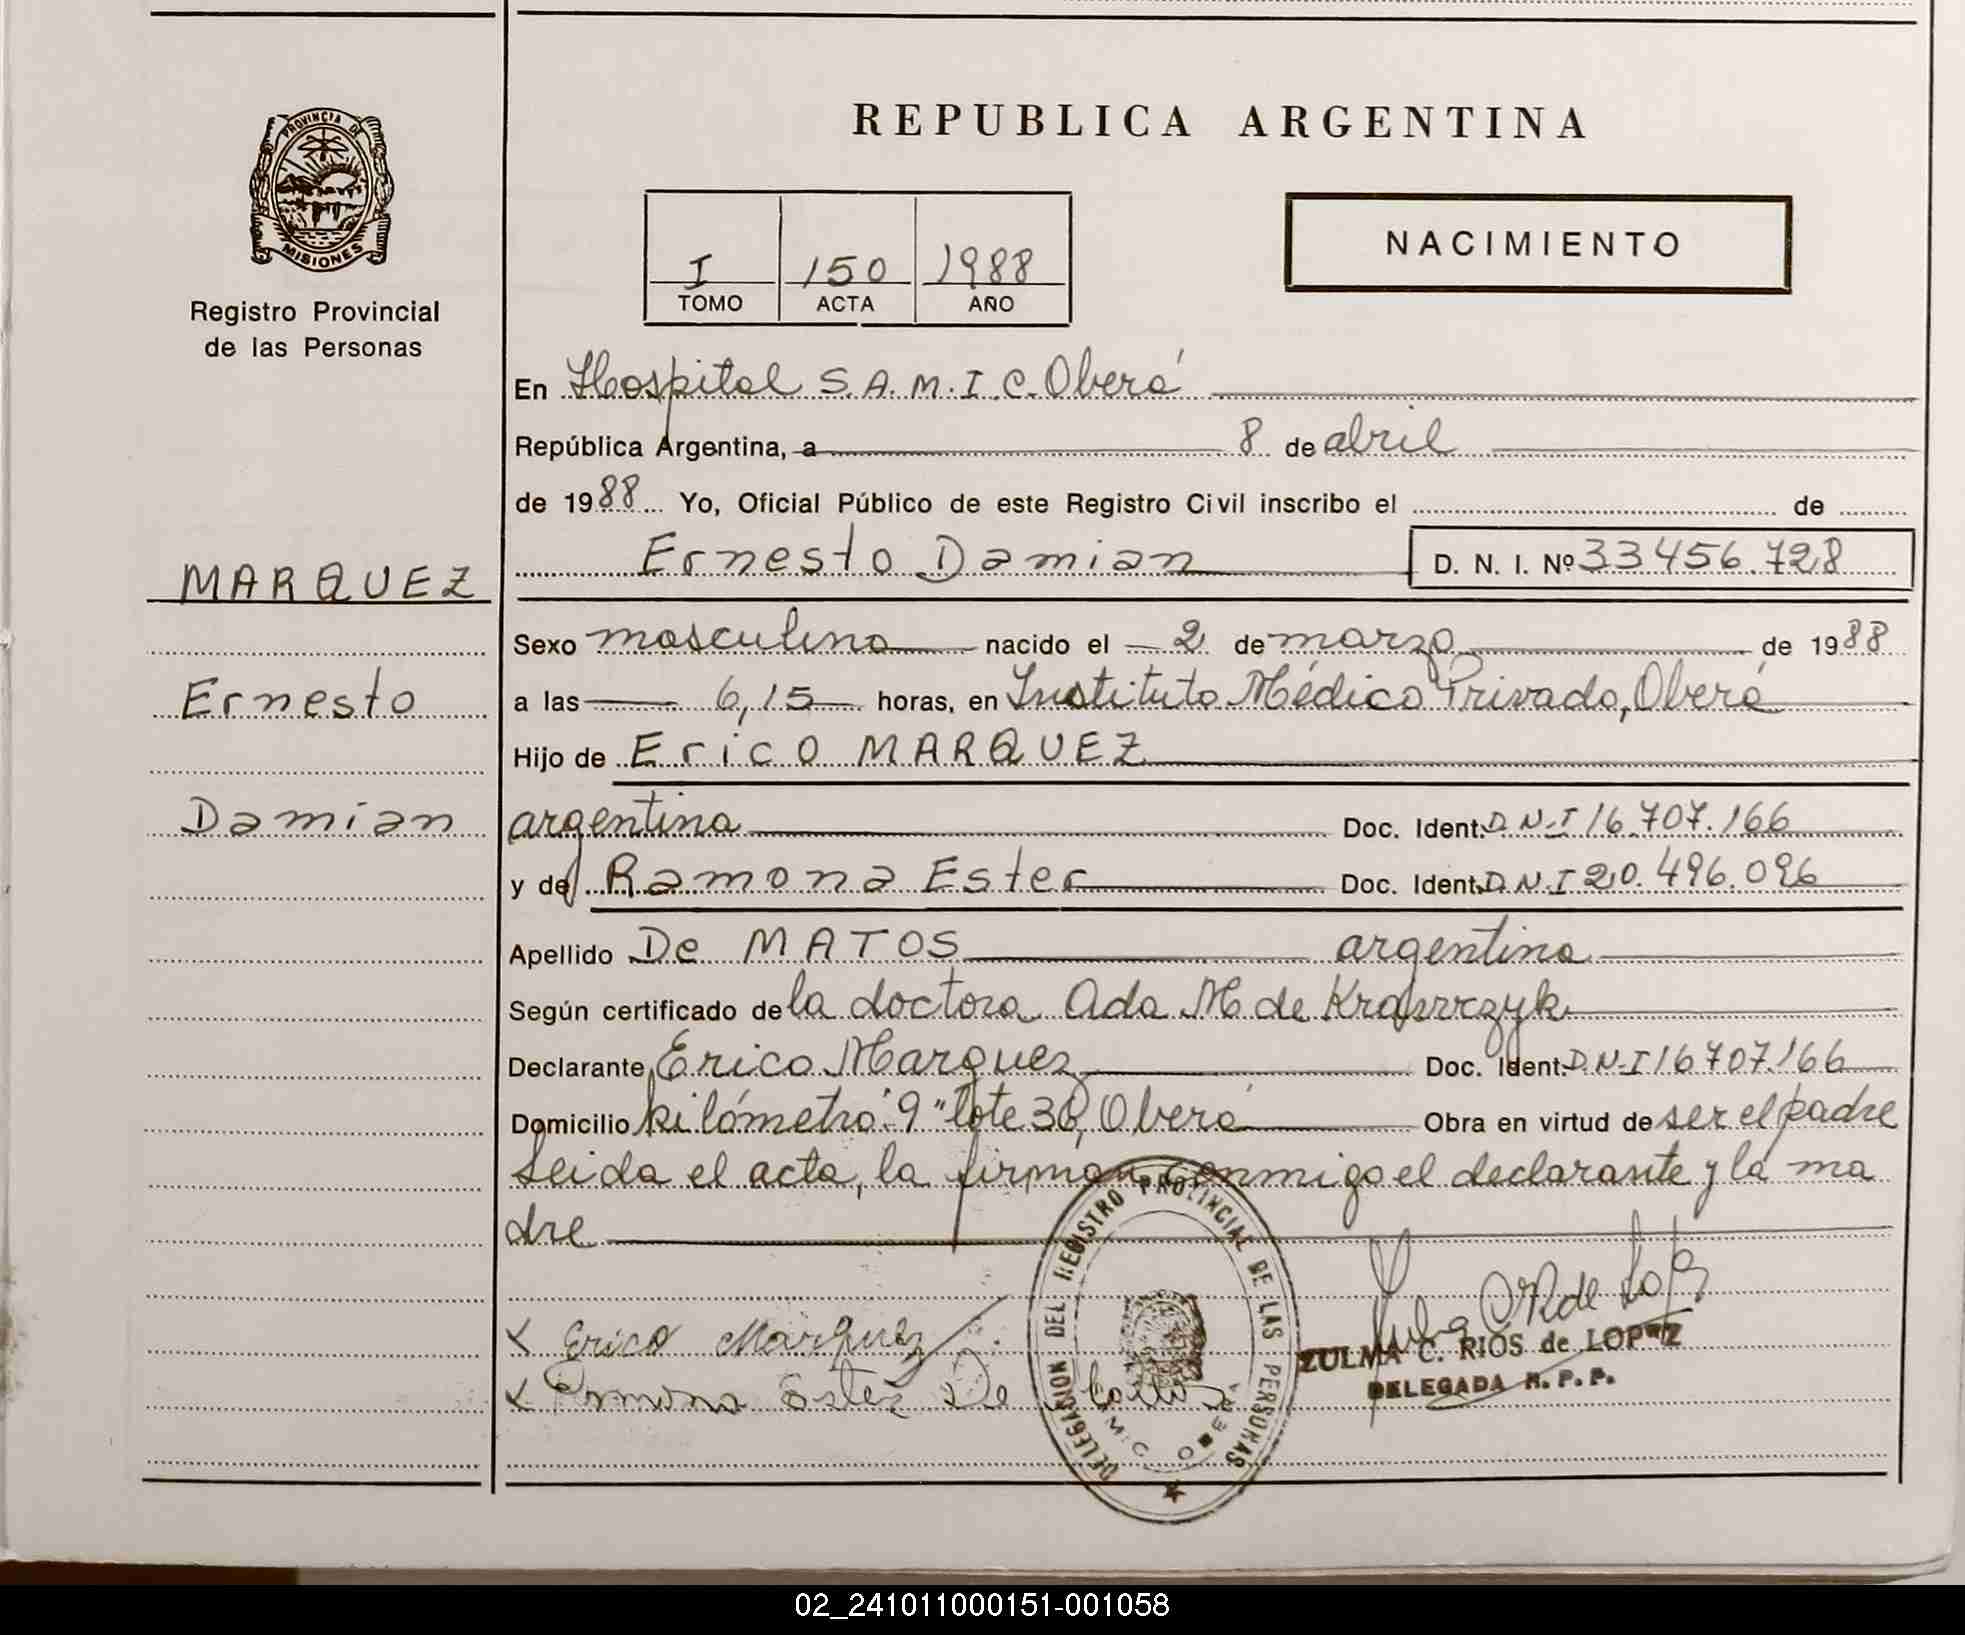 PROVINCIA DE
MISIONES
Registro Provincial
de las Personas
MARQUEZ
Ernesto
Damian
REPUBLICA ARGENTINA
I 150 1988
TOMO ACTA AÑO
NACIMIENTO
En Hospital S.A.M.I.C. Oberá
República Argentina, a 8 de abril
de 1988 Yo, Oficial Público de este Registro Civil inscribo el de
Ernesto Damian D. N. I. Nº 33456.728
Sexo masculino nacido el 2 de marzo de 1988
a las 6,15 horas, en Instituto Médico Privado, Oberá
Hijo de Erico MARQUEZ
argentina Doc. Ident. D.N.I 16.707.166
y de Ramona Ester Doc. Ident. D.N.I 20.496.096
Apellido De MATOS argentina
Según certificado de la doctora Ada M de
Declarante Erico Marquez Doc. Ident. D.N.I 16707.166
Domicilio kilómetro "9" lote 36, Oberá Obra en virtud de ser el padre
Leida el acta, la firman conmigo el declarante y la ma
dre
x Erico Marquez
x Ramona Ester De Matos
DELEGACION DEL REGISTRO PROVINCIAL DE LAS PERSONAS
OBERA
ZULMA C. RIOS de LOPEZ
DELEGADA R. P. P.
02_241011000151-001058